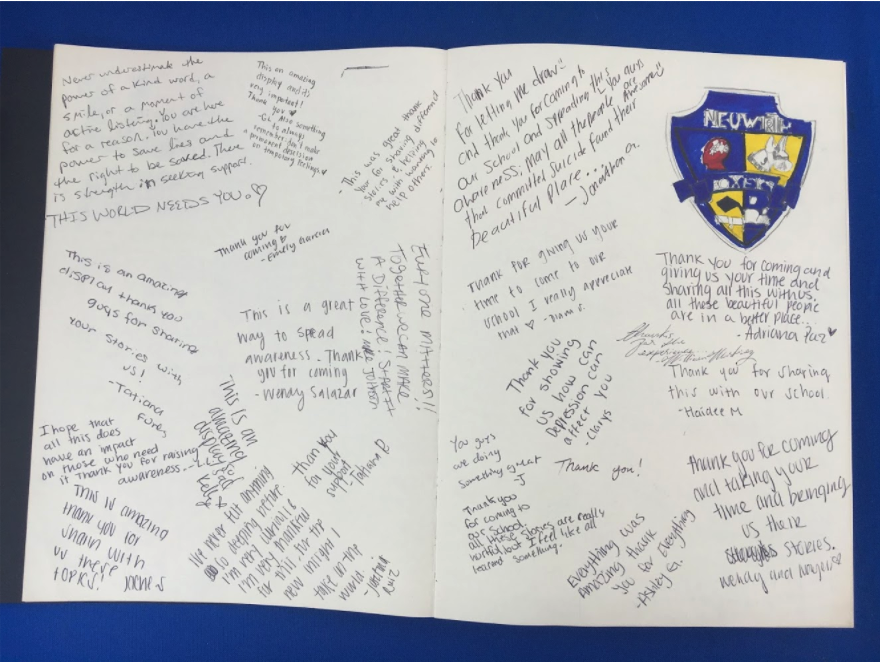 Never underestimate the
power of a kind word, a
smile, or a moment of
active listing. You are here
for a reason. You have the
power to save lives and
the right to be saved. There
is strength in seeking support.
THIS WORLD NEEDS YOU.
This an amazing
display and it's
very important!
Thank you
always
remember don't make
a permanent decision
on temporary feelings.
- This was great thank
you for sharing different
stories & helping
me with wanting to
help others.
Thank you for
coming to
- Emely Garcia
This is an amazing
display thank you
guys for sharing
your stories with
us!
- Tatiana
This is a great
way to spead
awareness. Thank
you for coming
- Wendy Salazar
EVERYONE MATTERS!!
TOGETHER WE CAN MAKE
A DIFFERENCE! START IT
WITH LOVE!
I hope that
all this does
have an impact
on those who need
it Thank you for raising
awareness.
This is an
amazing
display
Kelly
thank you
for your
support
- Tatiana R
This is amazing
thank you for
with
us these
topics!
I've never felt anything
so deeping before.
I'm very
I'm very thankful
for this for the
new insight I
take in the
world.
Ruiz
Thank you
for letting me draw
and thank you for coming to
our school and spreading this
awareness. You guys
are Awesome
may all the people
that committed suicide found their
beautiful place...
- Jonathon G.
NEUWIRTH
Thank for giving us your
time to come to our
school I really appreciate
that
Thank you for coming and
giving us your time and
sharing all this with us.
all these beautiful people
are in a better place.
- Adriana Paz
Thanks
for the
experience
Thank you
for showing
us how
Depression can
affect you
Thank you for sharing
this with our school.
- Haidee M
You guys
are doing
something great
- J
Thank you!
Thank you
for coming to
our school.
all these stories are really
but I feel like all
learned something.
Everything was
Amazing thank
you for everything
- Ashley G.
thank you for coming
and taking your
time and bringing
us their
stories.